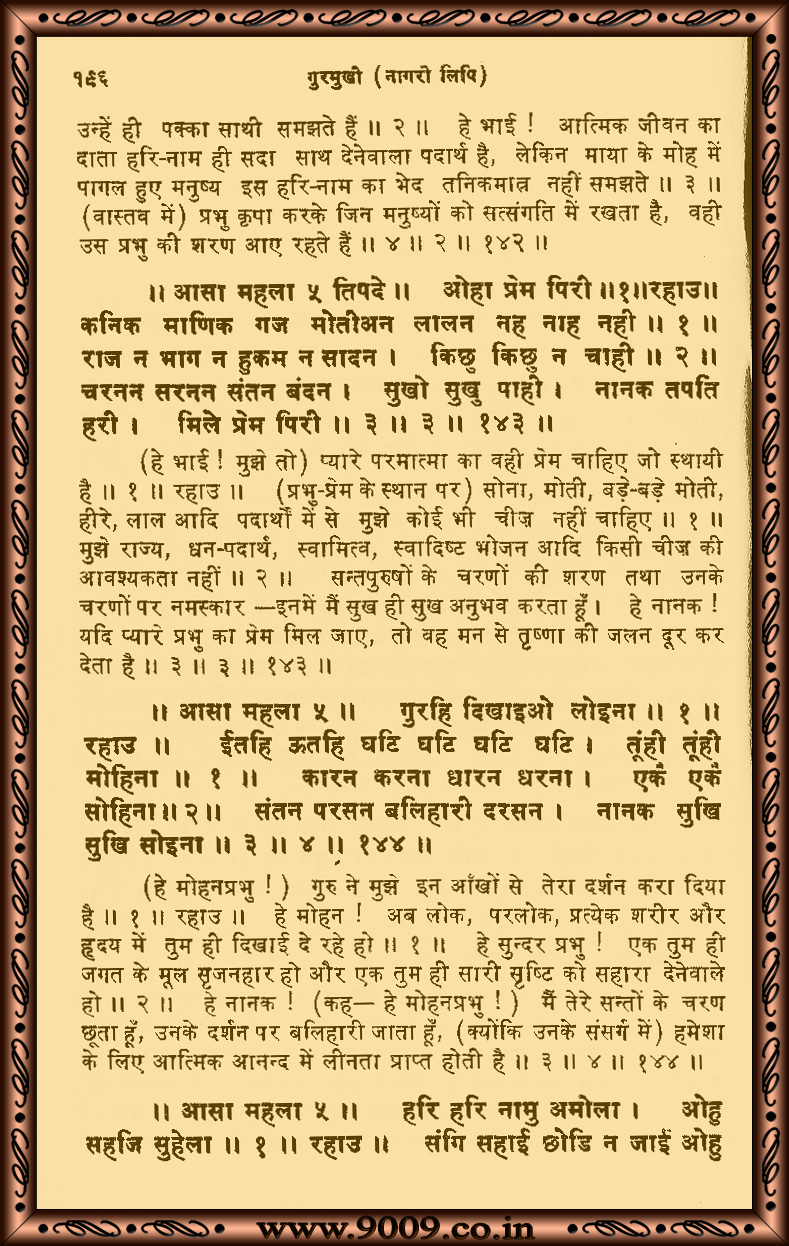 १९६ गुरमुखी (नागरी लिपि)
उन्हें ही पक्का साथी समझते हैं ॥ २ ॥ हे भाई ! आत्मिक जीवन का
दाता हरि-नाम ही सदा साथ देनेवाला पदार्थ है, लेकिन माया के मोह में
पागल हुए मनुष्य इस हरि-नाम का भेद तनिकमात्र नहीं समझते ॥ ३ ॥
(वास्तव में) प्रभु कृपा करके जिन मनुष्यों को सत्संगति में रखता है, वही
उस प्रभु की शरण आए रहते हैं ॥ ४ ॥ २ ॥ १४२ ॥
॥ आसा महला ५ तिपदे ॥ ओहा प्रेम पिरी ॥१॥रहाउ॥
कनिक माणिक गज मोतीअन लालन नह नाह नही ॥ १ ॥
राज न भाग न हुकम न सादन । किछु किछु न चाही ॥ २ ॥
चरनन सरनन संतन बंदन । सुखो सुखु पाही । नानक तपति
हरी । मिले प्रेम पिरी ॥ ३ ॥ ३ ॥ १४३ ॥
(हे भाई ! मुझे तो) प्यारे परमात्मा का वही प्रेम चाहिए जो स्थायी
है ॥ १ ॥ रहाउ ॥ (प्रभु-प्रेम के स्थान पर) सोना, मोती, बड़े-बड़े मोती,
हीरे, लाल आदि पदार्थों में से मुझे कोई भी चीज़ नहीं चाहिए ॥ १ ॥
मुझे राज्य, धन-पदार्थ, स्वामित्व, स्वादिष्ट भोजन आदि किसी चीज़ की
आवश्यकता नहीं ॥ २ ॥ सन्तपुरुषों के चरणों की शरण तथा उनके
चरणों पर नमस्कार —इनमें मैं सुख ही सुख अनुभव करता हूँ । हे नानक !
यदि प्यारे प्रभु का प्रेम मिल जाए, तो वह मन से तृष्णा की जलन दूर कर
देता है ॥ ३ ॥ ३ ॥ १४३ ॥
॥ आसा महला ५ ॥ गुरहि दिखाइओ लोइना ॥ १ ॥
रहाउ ॥ ईतहि ऊतहि घटि घटि घटि घटि । तूंही तूंही
मोहिना ॥ १ ॥ कारन करना धारन धरना । एकै एकै
सोहिना॥ २॥ संतन परसन बलिहारी दरसन । नानक सुखि
सुखि सोइना ॥ ३ ॥ ४ ॥ १४४ ॥
(हे मोहनप्रभु !) गुरु ने मुझे इन आँखों से तेरा दर्शन करा दिया
है ॥ १ ॥ रहाउ ॥ हे मोहन ! अब लोक, परलोक, प्रत्येक शरीर और
हृदय में तुम ही दिखाई दे रहे हो ॥ १ ॥ हे सुन्दर प्रभु ! एक तुम ही
जगत के मूल सृजनहार हो और एक तुम ही सारी सृष्टि को सहारा देनेवाले
हो ॥ २ ॥ हे नानक ! (कह— हे मोहनप्रभु !) मैं तेरे सन्तों के चरण
छूता हूँ, उनके दर्शन पर बलिहारी जाता हूँ, (क्योंकि उनके संसर्ग में) हमेशा
के लिए आत्मिक आनन्द में लीनता प्राप्त होती है ॥ ३ ॥ ४ ॥ १४४ ॥
॥ आसा महला ५ ॥ हरि हरि नामु अमोला । ओहु
सहजि सुहेला ॥ १ ॥ रहाउ ॥ संगि सहाई छोडि न जाई ओहु
www.9009.co.in